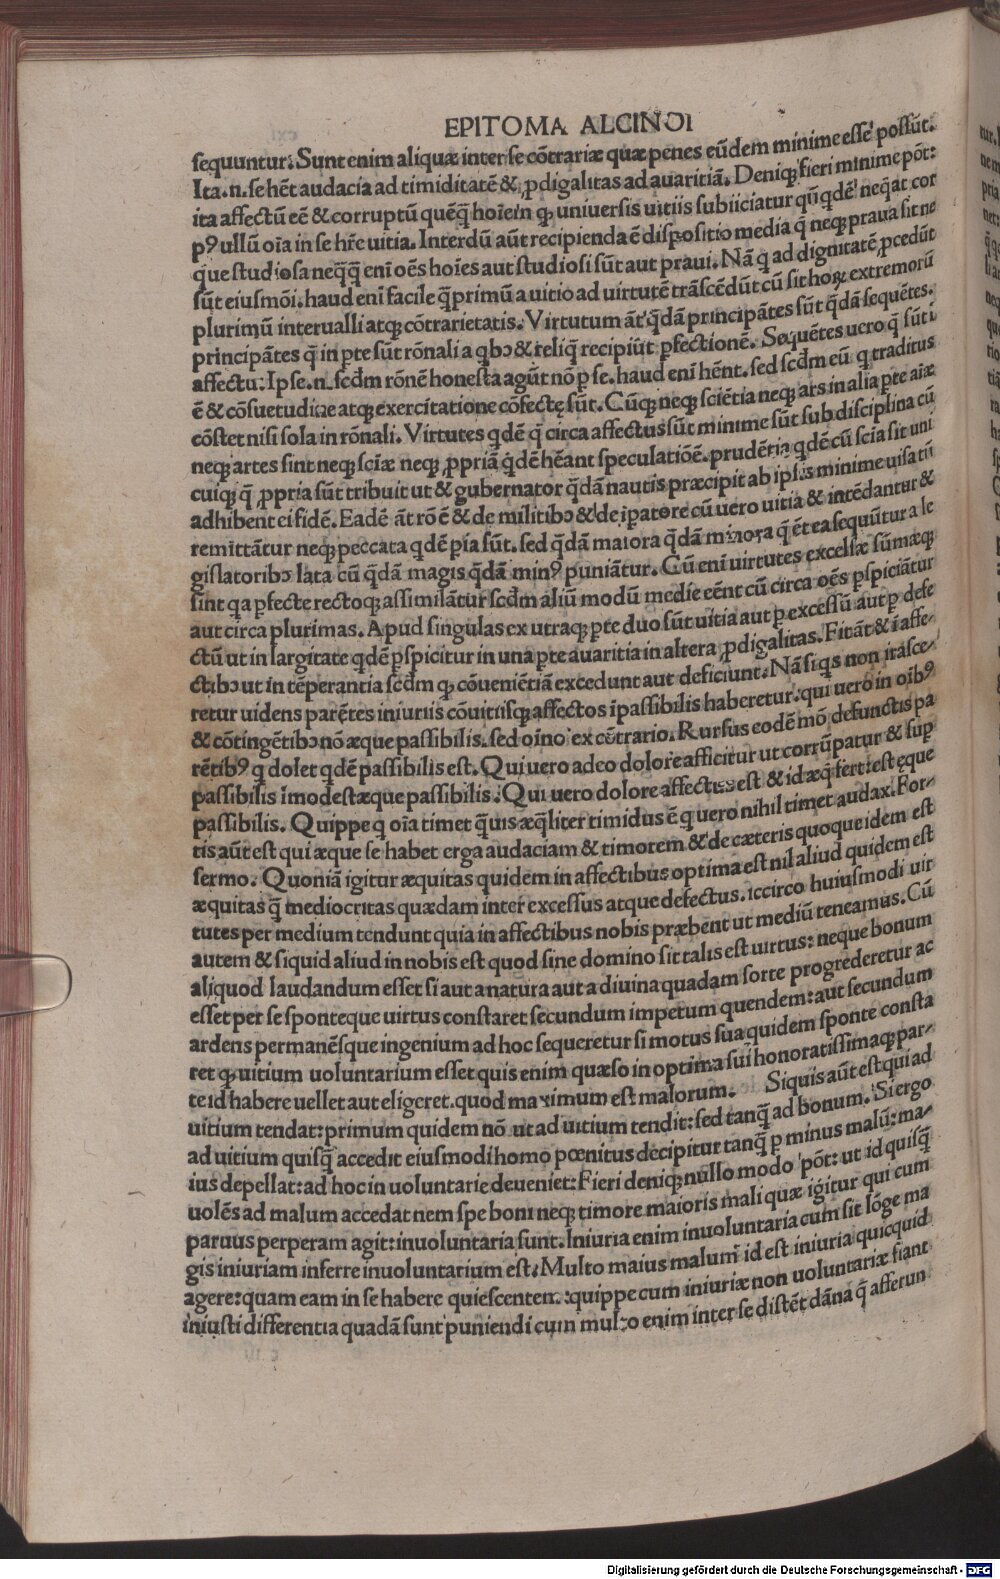 EPITOMA ALCINOI
sequuntur: Sunt enim aliquæ inter se cõtrariæ quæ penes eũdem minime esse possũt.
Ita .n. se hẽt audacia ad timiditatẽ & ꝓdigalitas ad auaritiã. Deniqꝫ fieri minime põt:
ita affectũ eẽ & corruptũ quẽq̃ hoĩem qꝫ uniuersis uitiis subiiciatur qñ qdẽ neq̃at cor
pꝰ ullũ oĩa in se hr̃e uitia. Interdũ aũt recipienda ẽ dispositio media q̃ neqꝫ praua sit ne
que studiosa neq̃q̃ enĩ oẽs hoĩes aut studiosi sũt aut praui. Nã q ad dignitatẽ ꝓcedũt
sũt eiusmõi. haud enĩ facile q̃ primũ a uitio ad uirtutẽ trãscẽdũt cũ sit hoꝝ extremorũ
plurimũ interualli atqꝫ cõtrarietatis. Virtutum ãt q̃dã principãtes sũt q̃dã sequẽtes.
principãtes q̃ in pte sũt rõnali a qbꝰ & reliq̃ recipiũt ꝑfectionẽ. Sequẽtes uero q̃ sũt ĩ
affectu: Ipse .n. scd̃m rõnẽ honesta agũt nõ ꝑ se. haud enĩ hẽnt. sed scd̃m eũ q traditus
ẽ & cõsuetudine atqꝫ exercitatione cõfectę sũt. Cũqꝫ neqꝫ sciẽtia neqꝫ ars in alia ꝑte aiæ
cõstet nisi sola in rõnali. Virtutes qdẽ q̃ circa affectus sũt minime sũt sub disciplina cũ
neqꝫ artes sint neqꝫ sciæ neqꝫ ꝓpriã q̃dẽ hẽant speculatiõẽ. prudẽtia qdẽ cũ scĩa sit uni
cuiqꝫ q̃ ꝓpria sũt tribuit ut & gubernator q̃dã nautis præcipit ab ipsis minime uisa tñ
adhibent ei fidẽ. Eadẽ ãt rõ ẽ & de militibꝰ & de iꝑatore cũ uero uitia & intẽdantur &
remittãtur neqꝫ peccata qdẽ pĩa sũt. sed q̃dã maiora q̃dã minora q̃ ẽt ea sequũtur a le
gislatoribꝰ lata cũ q̃dã magis q̃dã minꝰ puniãtur. Cũ enĩ uirtutes excelsæ sũmæqꝫ
sint q a ꝑfecte rectoqꝫ assimilãtur scd̃m aliũ modũ medie eẽnt cũ circa oẽs ꝑspiciãtur
aut circa plurimas. Apud singulas ex utraqꝫ ꝑte duo sũt uitia aut ꝑ excessũ aut ꝑ defe
ctũ ut in largitate qdẽ ꝑspicitur in una ꝑte auaritia in altera ꝓdigalitas. Fitãt & ĩ affe-
ctibꝰ ut in tẽperantia scd̃m qꝫ cõueniẽtiã excedunt aut deficiunt. Nã siqs non irasce-
retur uidens parẽtes iniuriis cõuitiisqꝫ affectos ĩpassibilis haberetur. qui uero in oĩbꝰ
& cõtingẽtibꝰ nõ æque passibilis. sed oĩno ex cõtrario. Rursus eodẽ mõ defunctis pa
rẽtibꝰ q dolet qdẽ passibilis est. Qui uero adeo dolore afficitur ut corrũpatur & suꝑ
passibilis ĩmodestæque passibilis. Qui uero dolore affectus est & id æq̃ fert: est ęque
passibilis. Quippe q oĩa timet q̃uis æq̃liter timidus ẽ q uero nihil timet audax. For-
tis aũt est qui æque se habet erga audaciam & timorem & de cæteris quoque idem est
sermo. Quoniã igitur æquitas quidem in affectibus optima est nil aliud quidem est
æquitas q̃ mediocritas quædam inter excessus atque defectus. iccirco huiusmodi uir
tutes per medium tendunt quia in affectibus nobis præbent ut mediũ teneamus. Cũ
autem & siquid aliud in nobis est quod sine domino sit talis est uirtus: neque bonum
aliquod laudandum esset si aut a natura aut a diuina quadam sorte progrederetur ac
esset per se sponteque uirtus constaret secundum impetum quendem: aut secundum
ardens permanẽsque ingenium ad hoc sequeretur si motus sua quidem sponte consta
ret qꝫ uitium uoluntarium esset quis enim quæso in optima sui honoratissimaqꝫ par-
te id habere uellet aut eligeret. quod maximum est malorum. Siquis aũt est qui ad
uitium tendat: primum quidem nõ ut ad uitium tendit: sed tanq̃ ad bonum. Si ergo
ad uitium quisq̃ accedit eiusmodi homo pœnitus decipitur tanq̃ ꝑ minus malũ: ma-
ius depellat: ad hoc inuoluntarie deueniet: Fieri deniqꝫ nullo modo põt: ut id quisq̃
uolẽs ad malum accedat nem spe boni neqꝫ timore maioris mali quæ igitur qui cum
paruus perperam agit: inuoluntaria sunt. Iniuria enim inuoluntaria cum sit lõge ma
gis iniuriam inferre inuoluntarium est: Multo maius malum id est iniuria quicquid
agere: quam eam in se habere quiescentem: quippe cum iniuriæ non uoluntariæ fiant
iniusti differentia quadã sunt puniendi cum multo enim inter se distẽt dãna q̃ afferun
Digitalisierung gefördert durch die Deutsche Forschungsgemeinschaft - DFG